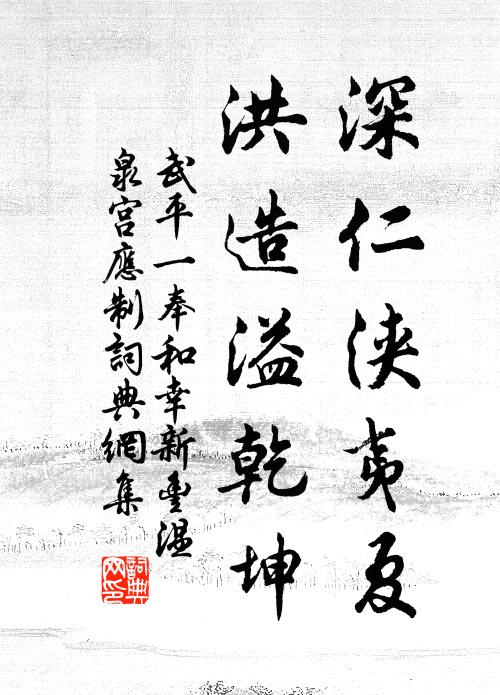 深仁浹夷夏
洪造溢乾坤
武平一奉和幸新豊温
泉宮應制詞典網集
詞典網印